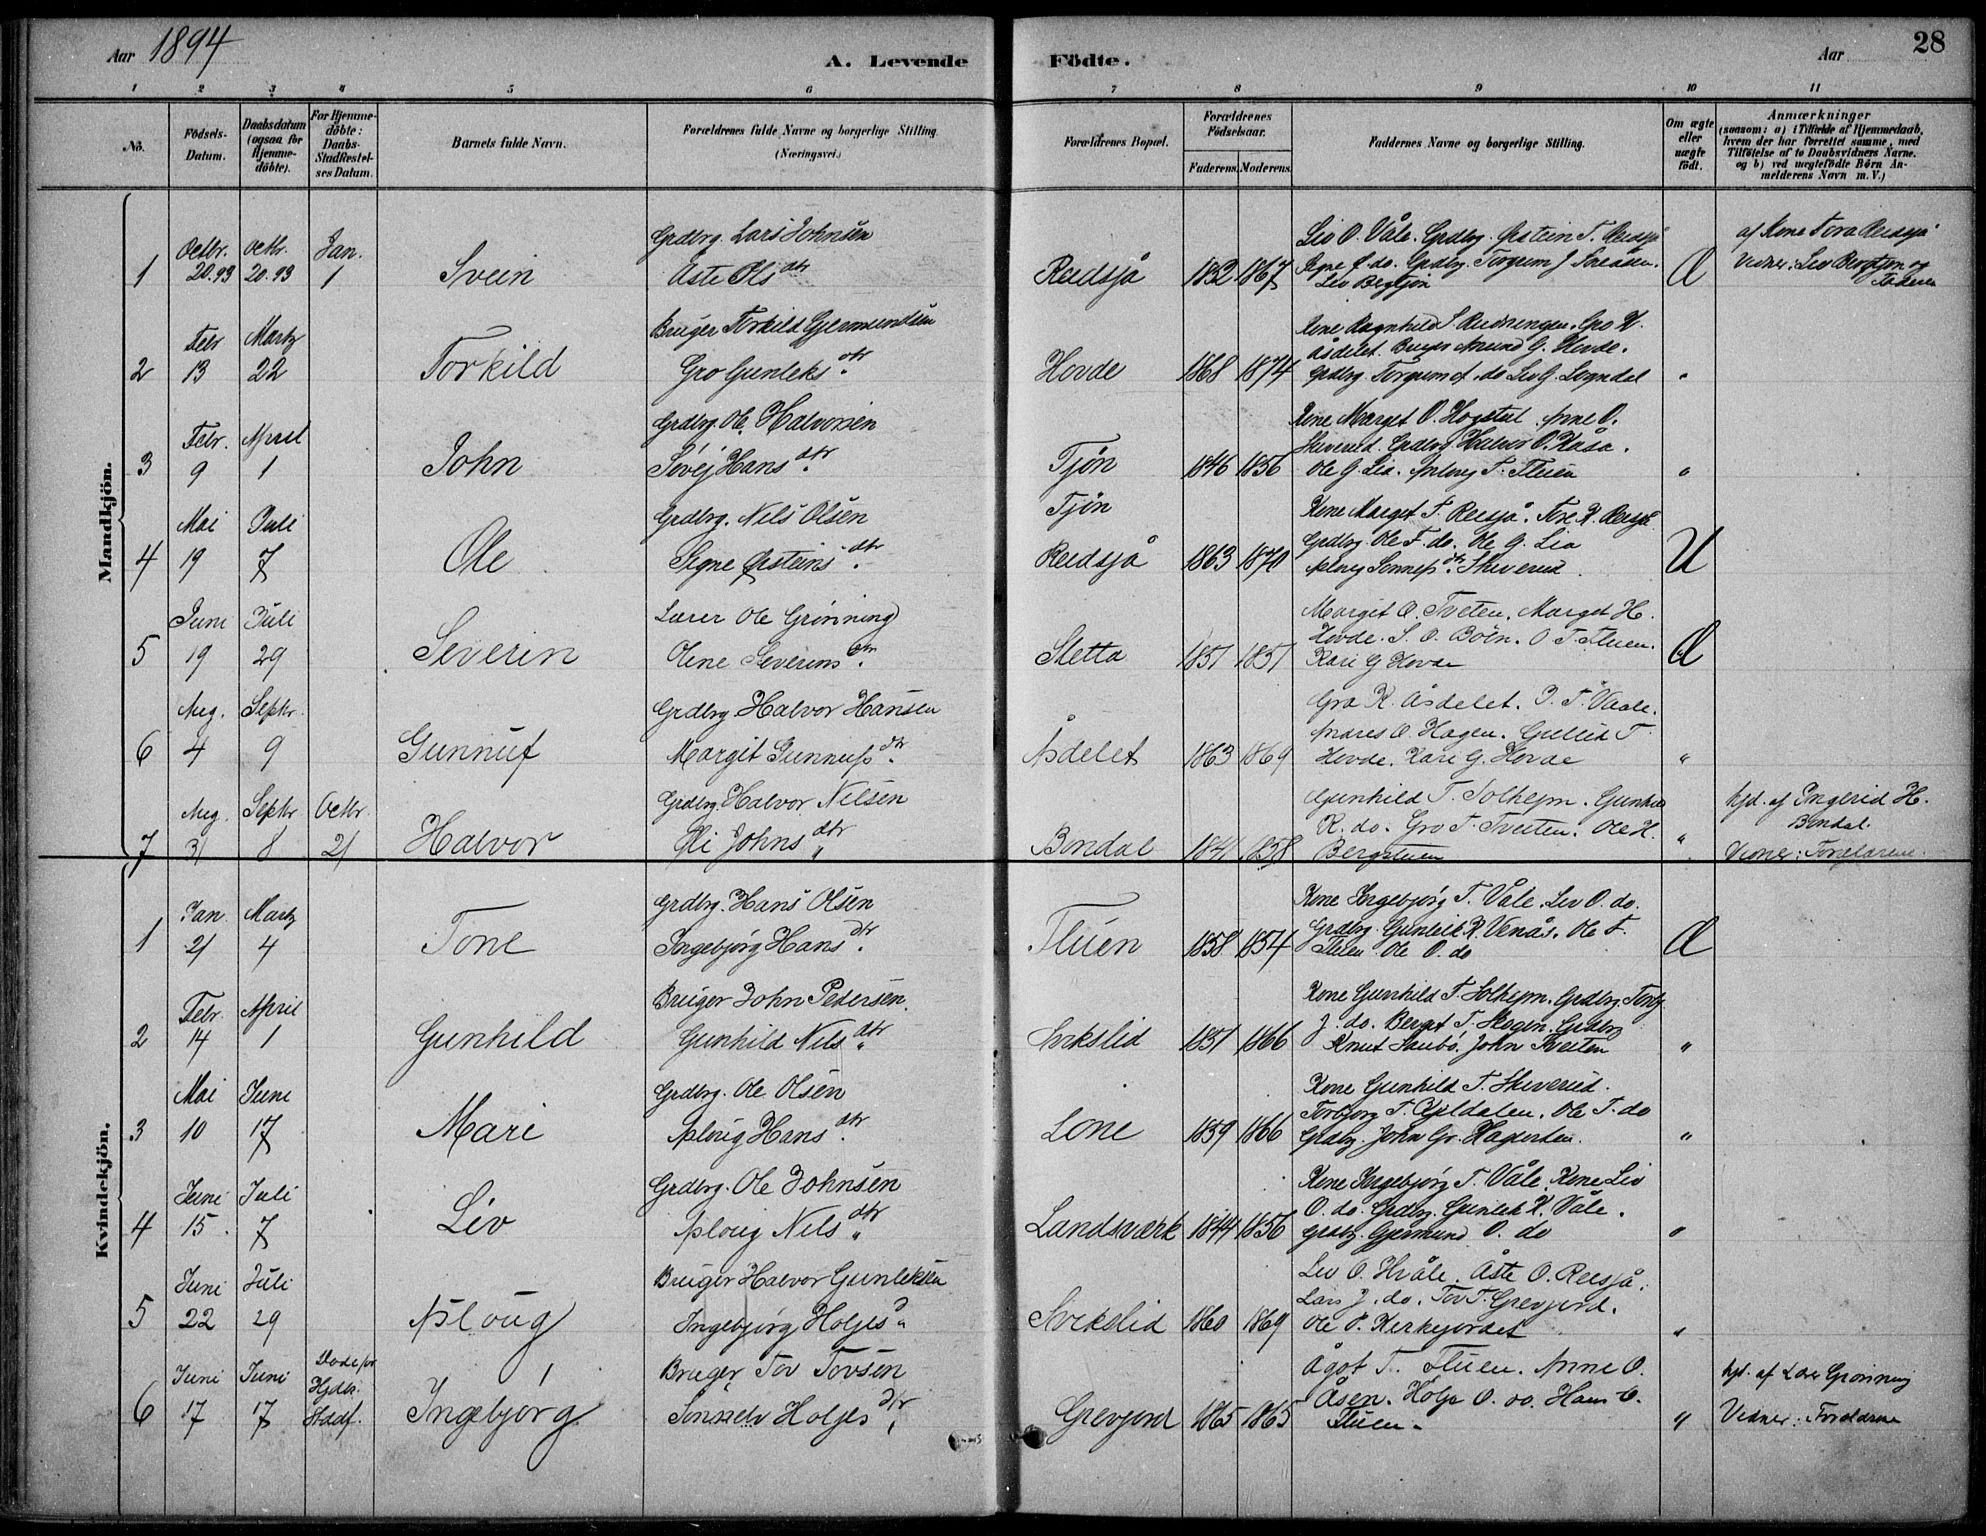 Aar 1894
A. Levende Födte.
Aar
28
1 2 3 4 5 6 7 8 9 10 11
No.
Födsels-Datum.
Daabsdatum (ogsaa for Hjemmedöbte).
For Hjemmedöbte: Daabs-Stadfæstelses Datum.
Barnets fulde Navn.
Forældrenes fulde Navne og borgerlige Stilling. (Næringsvei.)
Forældrenes Bopæl.
Forældrenes Födselsaar.
Faderens. Moderens.
Faddernes Navne og borgerlige Stilling.
Om ægte eller uægte födt.
Anmærkninger
(saasom: a) i Tilfælde af Hjemmedaab, hvem der har forrettet samme, med Tilföielse af to Daabsvidners Navne. og b) ved uægtefödte Börn Anmelderens Navn m. V.)
Mandkjön.
1 Octbr. 20.93 Octbr. 20.93 Jan. 1 Svein
Grdbrg. Lars Johnsen
Aste Ols dtr
Reidsjå 1852 1867
Liv O. Våle. Grdbrg. Østein T. Reidsjå
Signe Ø. do. Grdbrg. Torgrim J.
Liv Bergtjøn
Æ
af Kone Tora Reidsjå
Vidner: Liv Bergtjøn og Faderen
2 Febr 13 Martz 22 Torkild
Bruger Torkild Gjermundsen
Gro Gunleks dtr.
Hovde 1868 1874
Kone Ragnhild S. Rudsengen. Gro H.
Åsdelet. Bruger Amund G. Hovde.
Grdbrg. Torgrim do Liv G. Logndal
"
3 Febr. 9 April 1 John
Grdbrg. Ole Halvorsen
Sövej Hans dtr.
Tjøn 1846 1856
Kone Marget O. Hogstul. Anne O.
Skiverud. Grdbrg. Halvor O. Kåsa.
Ole G. Lia. Aploug T. Fluen
"
4 Mai 19 Juli 7 Ole
Grdbrg. Nils Olsen
Signe Østeins dtr.
Tjøn
Reidsjå 1863 1870
Kone Marget T. Reesjå. Tone R. Reesjå
Grdbrg Ole T. do. Ole G. Lia
Aploug Sonnefs dtr. Skiverud
U
5 Juni 19 Juli 29 Severin
Lærer Ole Grönning
Oline Severins dtr.
Sletta 1851 1851
Margit O. Tveten. Marget H.
Hovde. S. O. Böen. O. T. Fluen.
Kari G Hovde
Æ
6 Aug. 4 Septbr. 9 Gunnuf
Grdbrg Halvor Hansen
Margit Gunnufs dtr.
Åsdelet 1863 1869
Gro K. Åsdelet. T. Vaale.
Anders O. Hagen. Gullid T.
Hovde. Kari G. Hovde
"
7 Aug. 31 Septbr 8 Octbr. 21 Halvor
Grdbrg Halvor Nilsen
Oli Johns dtr
Bondal 1841 1858
Gunhild T. Solhejm. Gunhild
K. do. Gro T. Tveten. Ole H.
Bergstuen
"
hjd. af Ingerid H.
Bondal.
Vidner: Forældrene.
Kvindekjön.
1 Jan. 21 Martz 4 Tone
Grdbrg. Hans Olsen
Ingebjørg Hans dtr.
Fluen 1858 1854
Kone Ingebjørg T. Våle. Liv O. do.
Grdbrg. Gunleik K. Venås. Ole T.
Fluen Ole O. do
Æ
2 Febr. 14 April 1 Gunhild
Bruger John Pedersen.
Gunhild Nils dtr
1851 1866
Kone Gunhild T. Solhejm. Grdbrg.
J. do. Berget T. Skogen. Grdbrg
Knut Saubö. John Tveiten
"
3 Mai 10 Juni 17 Mari
Grdbrg. Ole Olsen
Aploug Hans dtr.
Lone 1859 1866
Kone Gunhild T. Skiverud.
Torbjörg T. Ole T. do
Grdbrg. John Gr.
"
4 Juni 15. Juli 7 Liv
Grdbrg. Ole Johnsen
Aploug Nils dtr
Landsværk 1844 1856
Kone Ingebjørg T. Våle. Kone Liv
O. do. Grdbrg. Gunleik K. Våle.
Grdbrg. Gjermund O. do
"
5 Juni 22 Juli 29 Aploug
Bruger Halvor Gunleksen
Ingebjørg Holjes D.
1860 1869
Liv O. Hvåle. Åste O. Reesjå.
Lars J. do. Tov T. Grevjord.
Ole P. Kirkejordet
"
6 Juni 17 Juni 17 Död för Hjdb. Stadf. Ingebjørg
Bruger Tov Tovsen
Holjes dtr
Grevjord 1865 1865
Ågot T. Fluen. Anne O.
Åsen. Holje O. do. Hans O.
Fluen.
"
hjd. af Lærer Grönning
Vidner: Forældrene